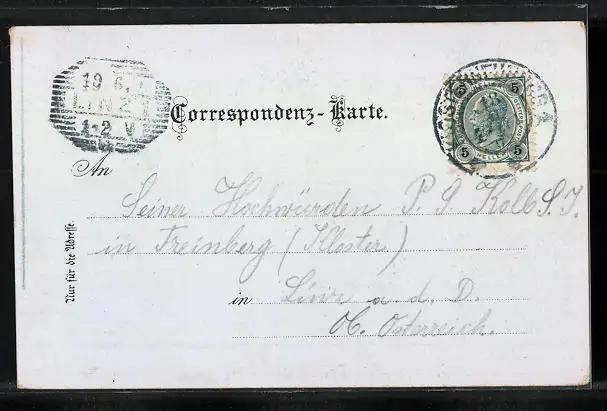 19 6
LINZ 1
1-2 V
Correspondenz-Karte.
5 5
5 HELLER 5
An
Seiner Hochwürden P. J. Kolb S. J.
in Freinberg (Kloster)
in Linz a. d. D.
Ob. Österreich.
Nur für die Adresse.